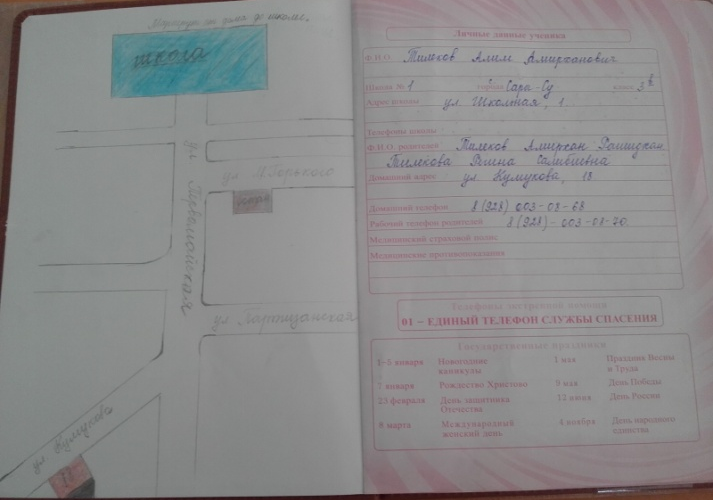 Маршрут от дома до школы.
школа
ул Первомайская
ул М.Горького
ул Партизанская
ул Кумукова
18
Личные данные ученика
Ф.И.О. Тилеков Алим Амирханович
Школа № 1 города Сары-Су класс 3
Адрес школы ул. Школьная, 1
Телефоны школы
Ф.И.О. родителей Тилеков Амирхан
Тилекова
Домашний адрес ул. Кумукова, 18
Домашний телефон 8 (928) 003-08-68
Рабочий телефон родителей 8 (928) - 003-08-70
Медицинский страховой полис
Медицинские противопоказания
Телефоны экстренной помощи
01 – ЕДИНЫЙ ТЕЛЕФОН СЛУЖБЫ СПАСЕНИЯ
Государственные праздники
1–5 января Новогодние каникулы
7 января Рождество Христово
23 февраля День защитника Отечества
8 марта Международный женский день
1 мая Праздник Весны и Труда
9 мая День Победы
12 июня День России
4 ноября День народного единства